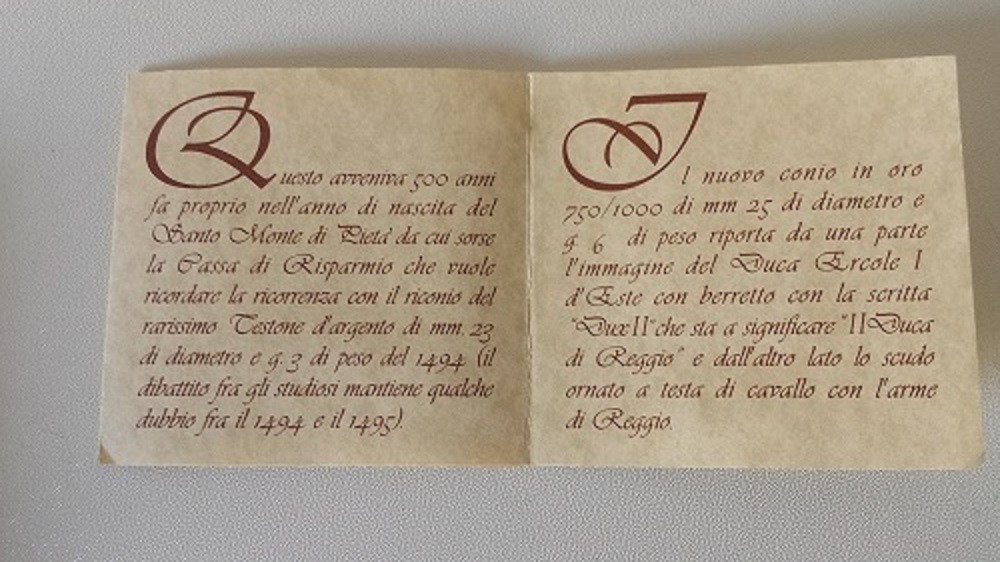 Questo avveniva 500 anni
fa proprio nell'anno di nascita del
Santo Monte di Pietà da cui sorse
la Cassa di Risparmio che vuole
ricordare la ricorrenza con il riconio del
rarissimo Testone d'argento di mm. 23
di diametro e g. 3 di peso del 1494 (il
dibattito fra gli studiosi mantiene qualche
dubbio fra il 1494 e il 1495).
Il nuovo conio in oro
750/1000 di mm 25 di diametro e
g. 6 di peso riporta da una parte
l'immagine del Duca Ercole I
d'Este con berretto con la scritta
"Dux II" che sta a significare "II Duca
di Reggio" e dall'altro lato lo scudo
ornato a testa di cavallo con l'arme
di Reggio.